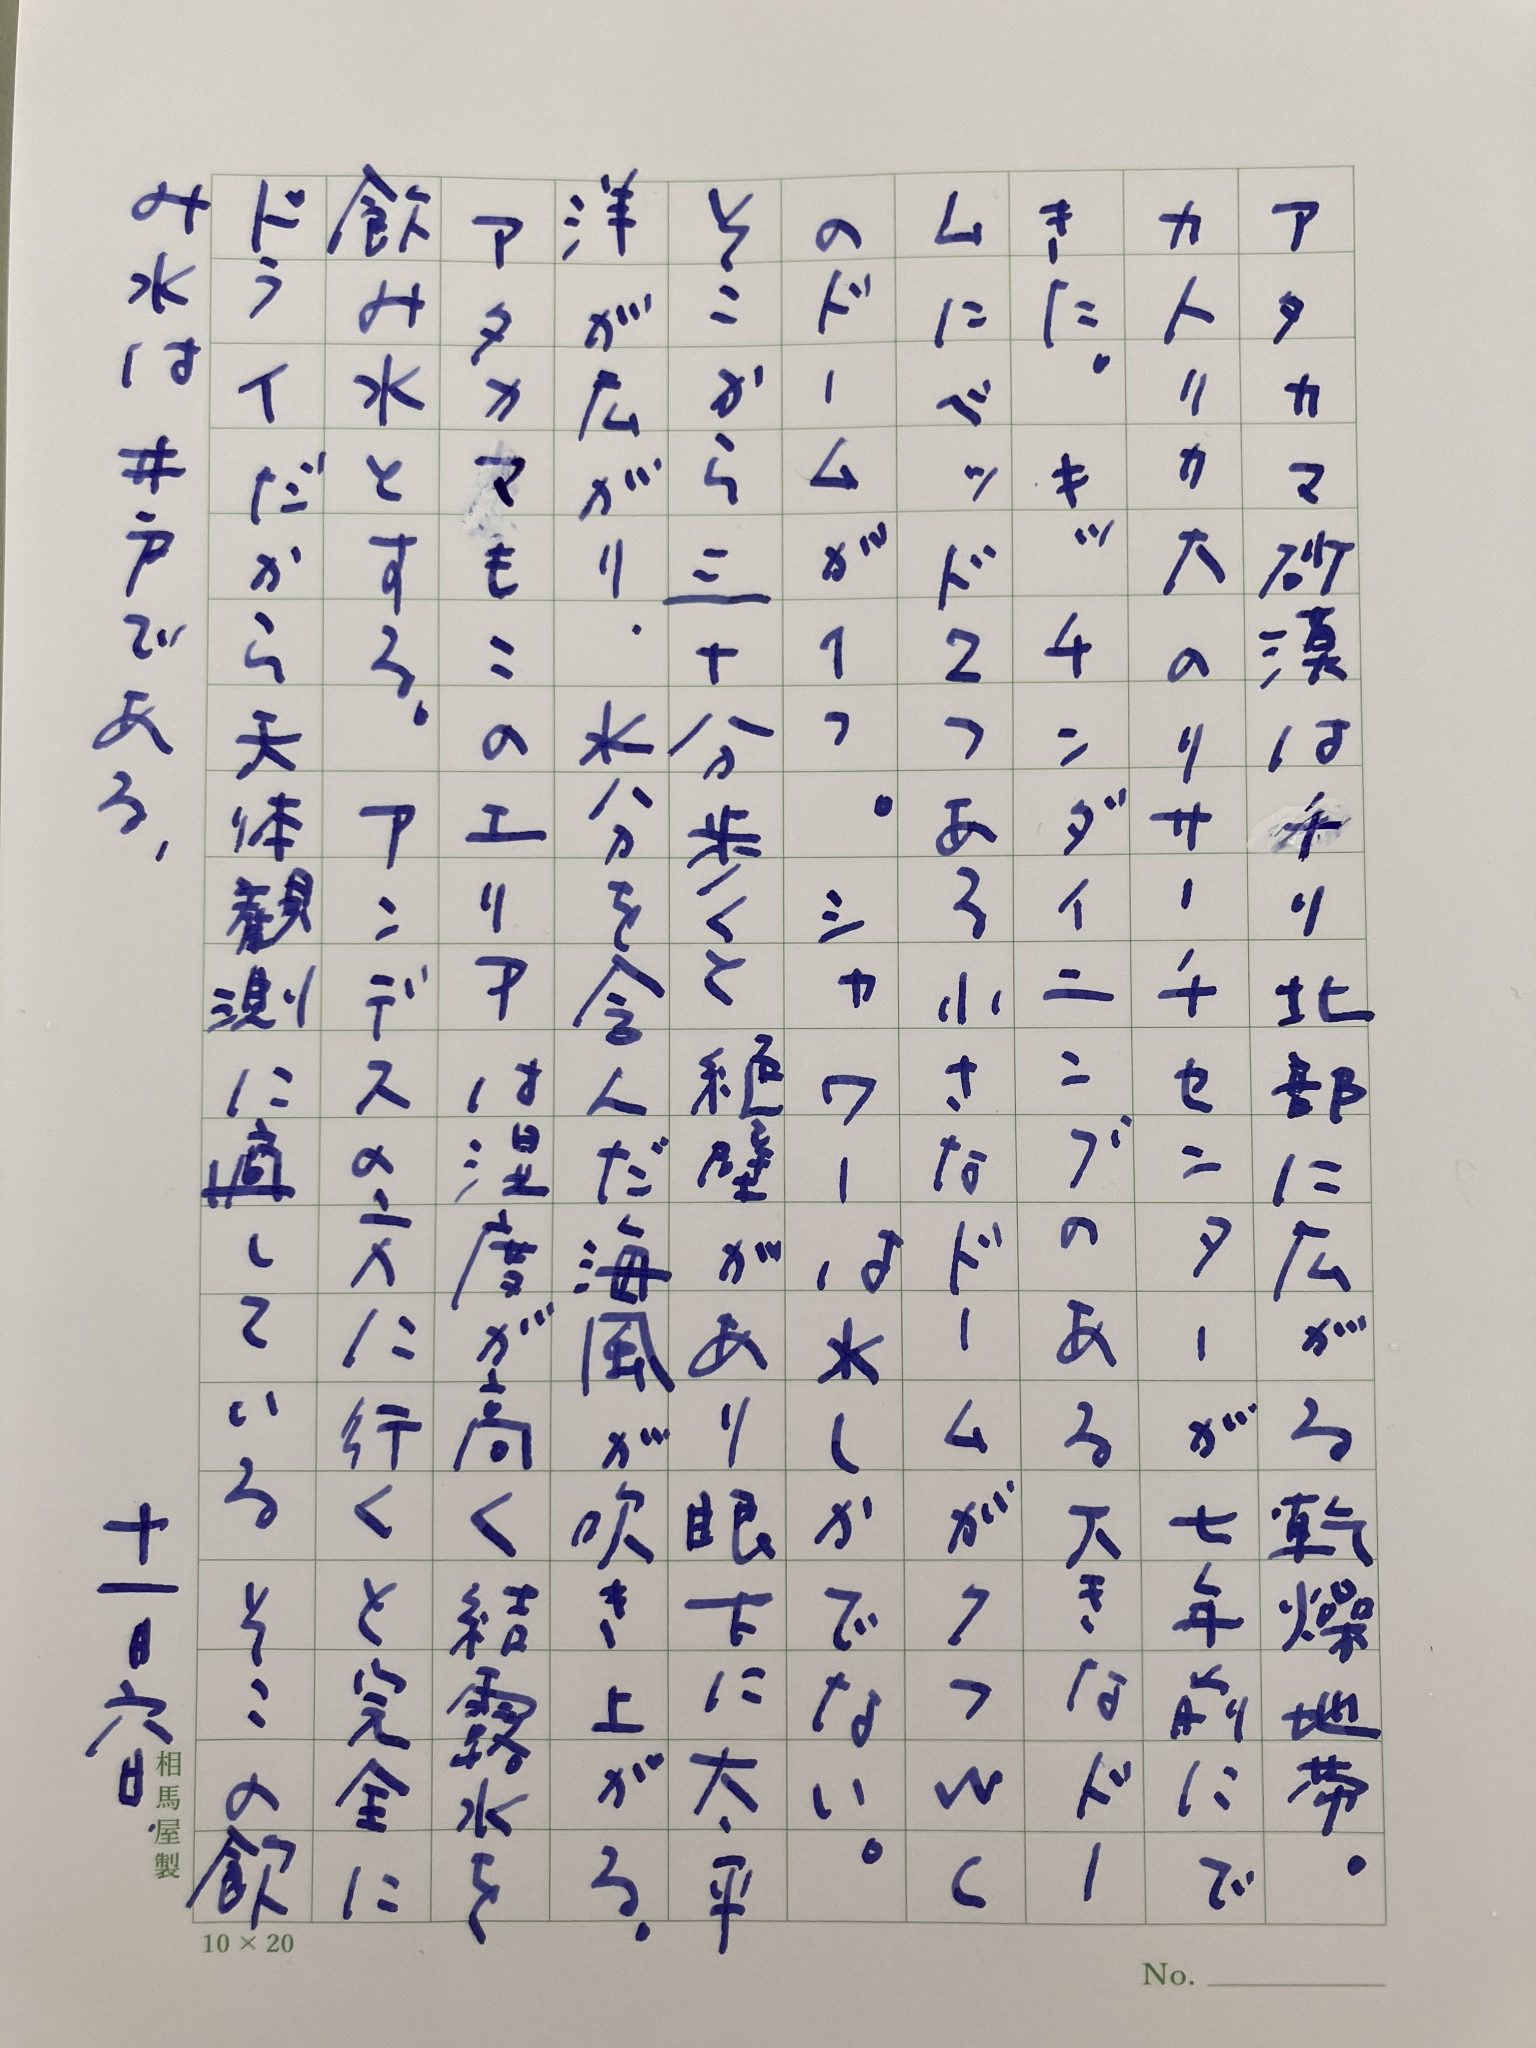 アタカマ砂漠はチリ北部に広がる乾燥地帯。
カトリカ大のリサーチセンターが七年前にで
きた。キッチンダイニングのある大きなドー
ムにベッド2つある小さなドームが7つWC
のドームが1つ。シャワーは水しかでない。
そこから三十分歩くと絶壁があり眼下に太平
洋が広がり、水分を含んだ海風が吹き上がる。
アタカマもこのエリアは湿度が高く結露水を
飲み水とする。アンデスの方に行くと完全に
ドライだから天体観測に適しているそこの飲
み水は井戸である、
十一月六日.
相馬屋製
10×20
No.